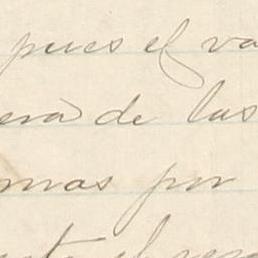 pues el va
erà de las
mas por
el